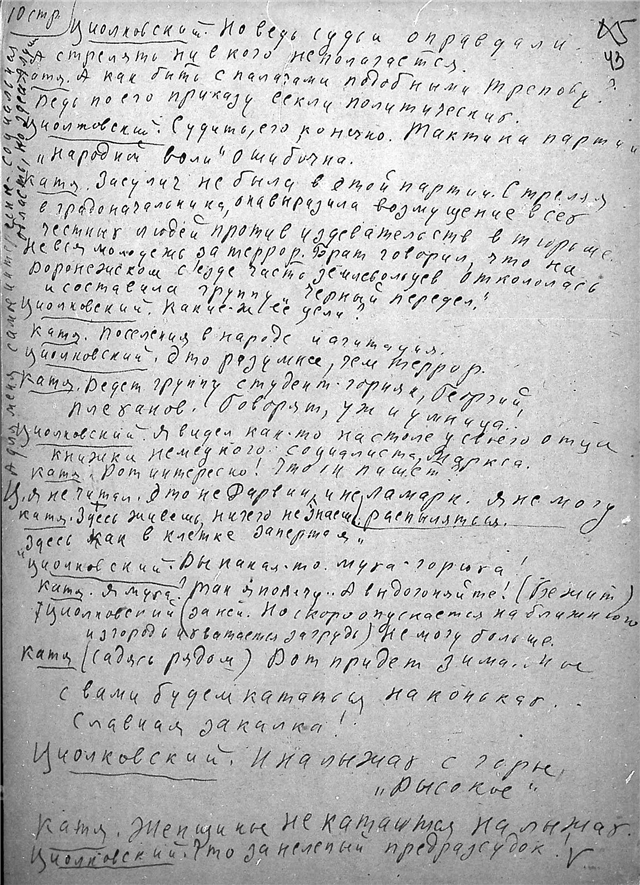 10 стр.
43
Циолковский. Но ведь судьи оправдали.
А стрелять ни в кого не полагается.
Катя. А как быть с палачами подобными Трепову?
Ведь по его приказу секли политических.
Циолковский. Судить, его конечно. Тактика партии
"Народной воли" ошибочна.
Катя. Засулич не была в этой партии. Стреляя
в градоначальника, она выразила возмущение всех
честных людей против издевательств в тюрьме.
Не вся молодежь за террор. Брат говорил, что на
Воронежском съезде часть землевольцев откололась
и составила группу "Черный передел."
Циолковский. Какие ж её цели?
Катя. Поселения в народе и агитация.
Циолковский. Это разумнее, чем террор.
Катя. Ведет группу студент-горняк, Георгий
Плеханов. Говорят, уж и умница!
Циолковский. Я видел как-то на столе у своего отца
книжки немецкого социалиста, Маркса.
Катя. Вот интересно! Что он пишет?
Ц. Я не читал. Это не Дарвин, и не Ламарк. Я не могу
распыляться.
Катя. Здесь живешь, ничего не знаешь
"Здесь как в клетке запертая"
Циолковский. Вы какая-то муха-горюха!
Катя. Я муха? Так я полечу.. А ну догоняйте! (Бежит)
Циолковский (за ней. Но скоро опускается на ближнюю
изгородь и хватается за грудь) Не могу больше.
Катя (садясь рядом) Вот придет зима.. мы
с вами будем кататься на коньках..
Славная закалка!
Циолковский. И на лыжах с горы,
"Высокое"
Катя. Женщины не катаются на лыжах.
Циолковский. Что за нелепый предрассудок!